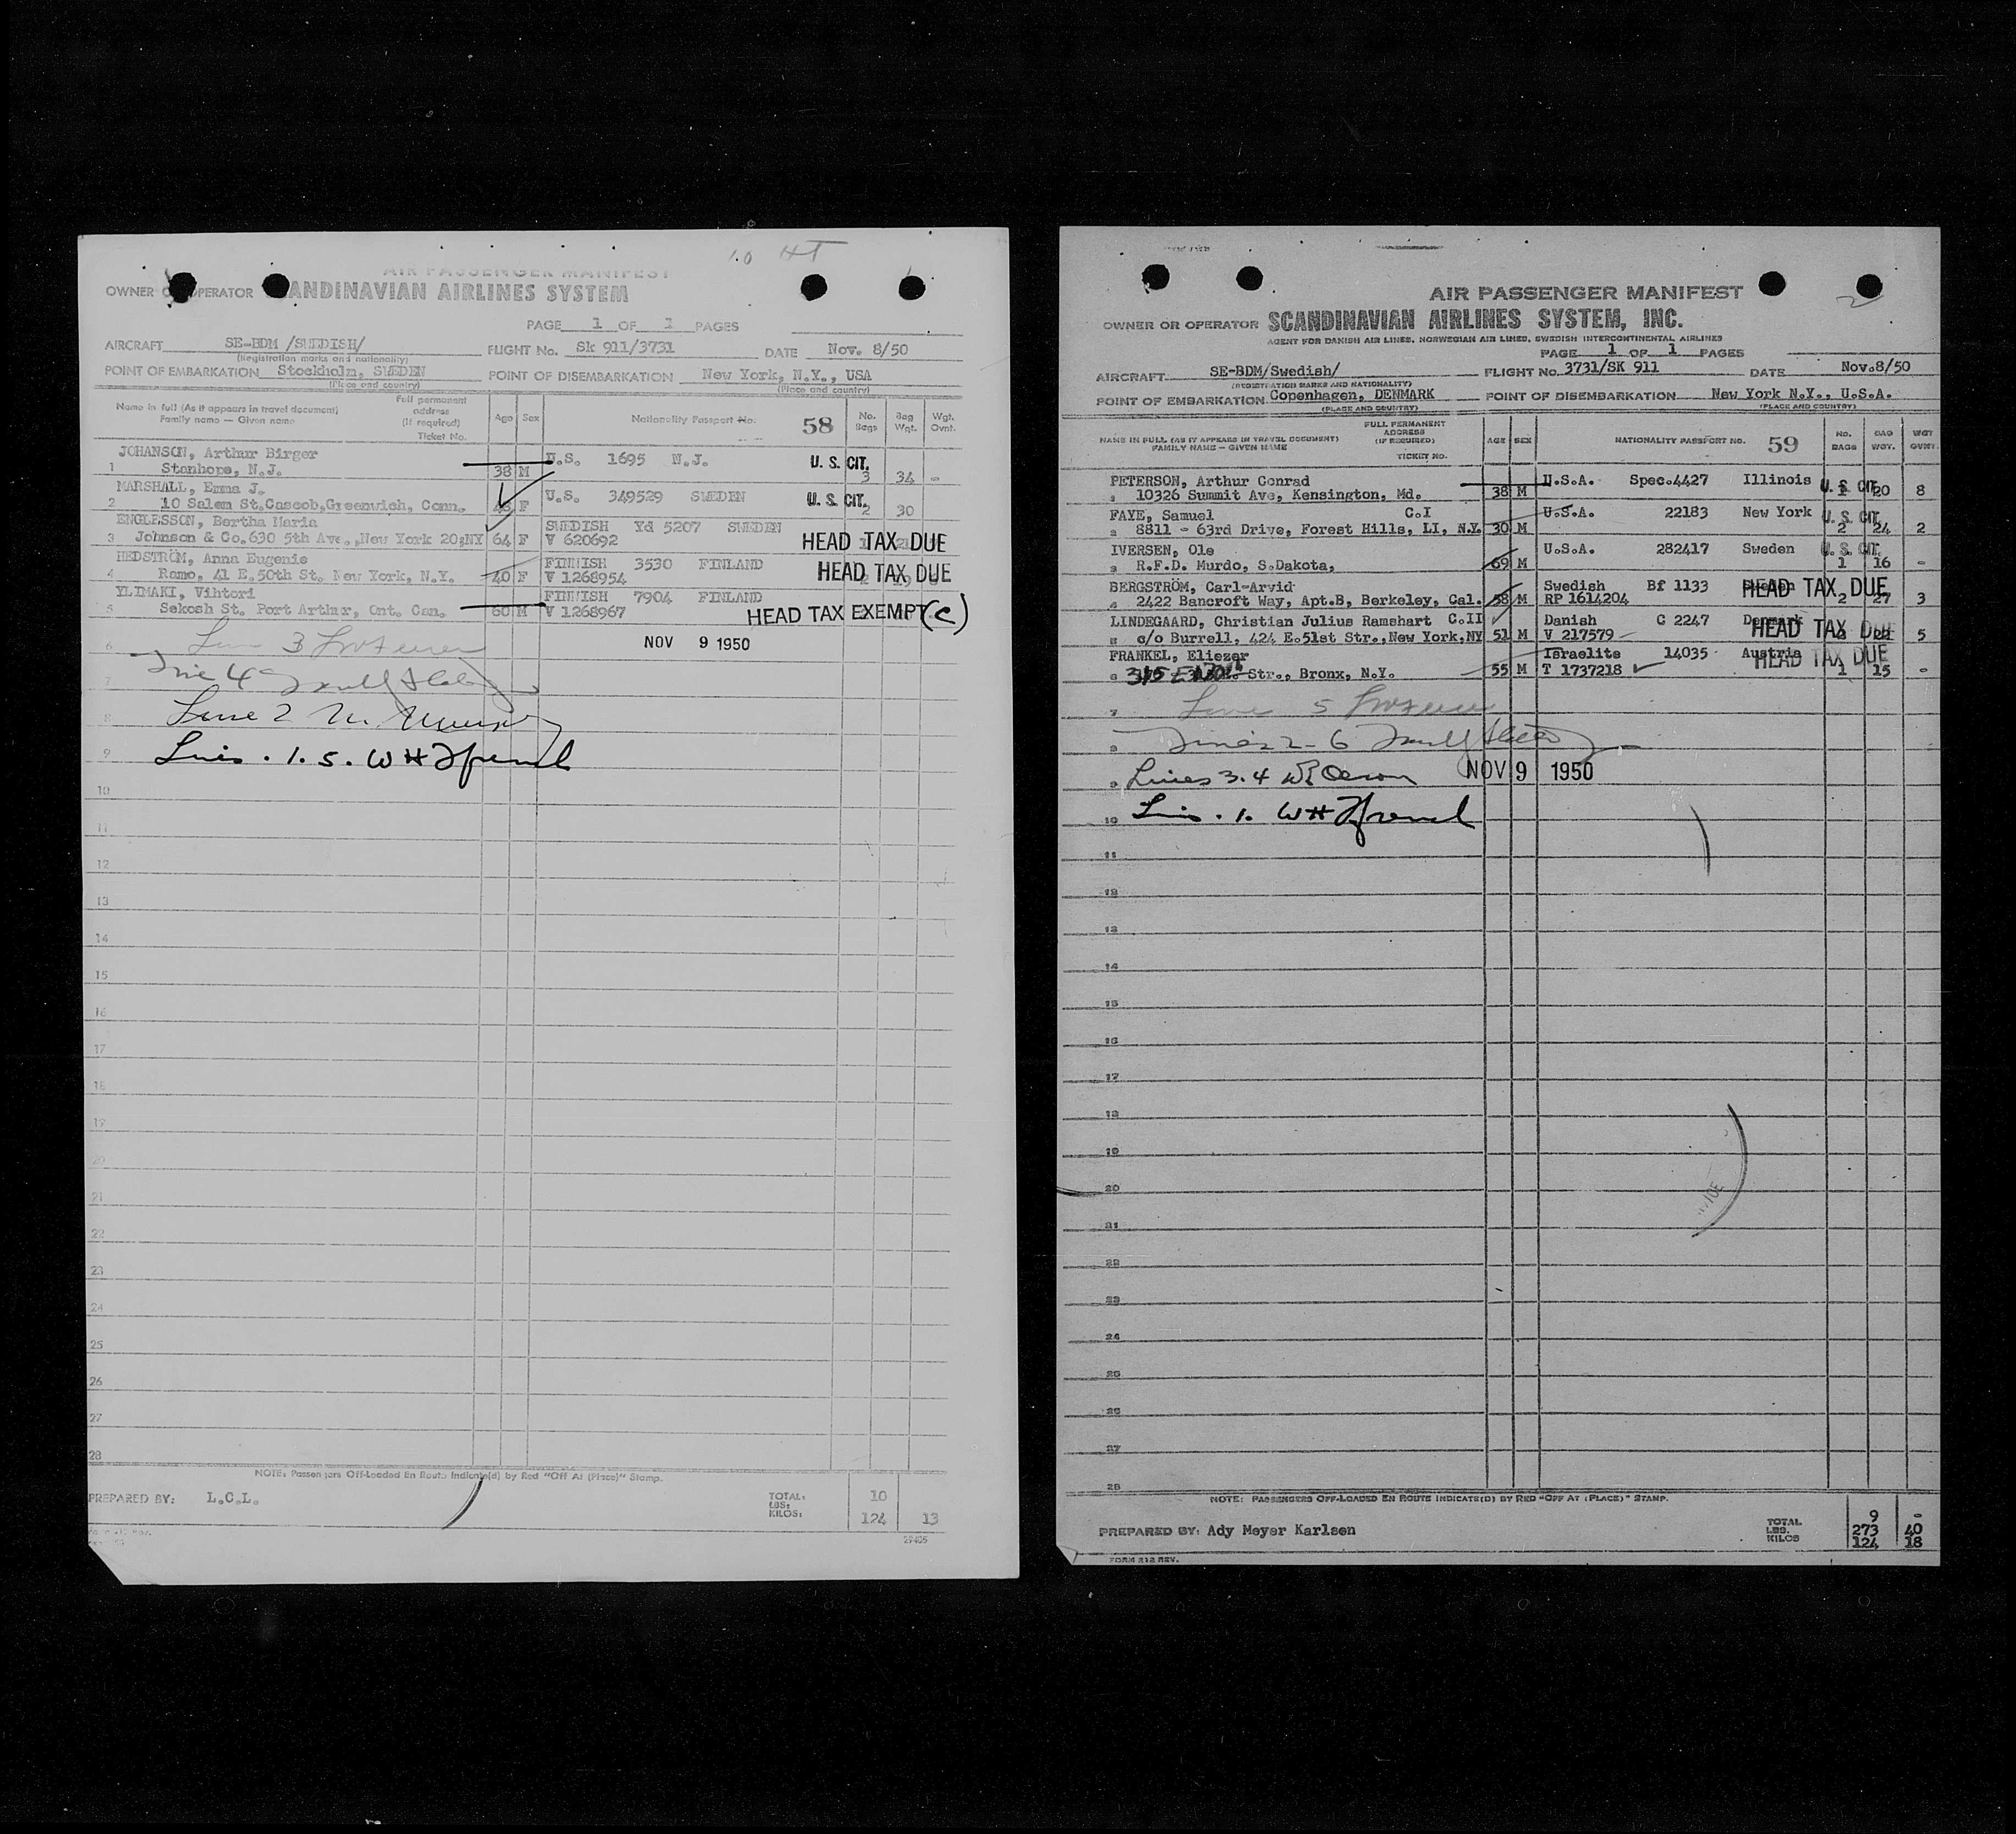 10 HT
AIR PASSENGER MANIFEST
OWNER OPERATOR SCANDINAVIAN AIRLINES SYSTEM
PAGE 1 OF 1 PAGES
AIRCRAFT SE-BDM /SWEDISH/ FLIGHT No. Sk 911/3731 DATE Nov. 8/50
(Registration marks and nationality)
POINT OF EMBARKATION Stockholm, SWEDEN POINT OF DISEMBARKATION New York, N.Y., USA
(Place and country) (Place and country)
Name in full (As it appears in travel document) Full permanent address (If required) Ticket No.
Family name — Given name
Age Sex Nationality Passport No. 58 No. Bags Bag Wgt. Wgt. Ovnt.
JOHANSON, Arthur Birger
1 Stanhope, N.J. 38 M U.S. 1695 N.J. U. S. CIT. 3 34 -
MARSHALL, Emma J.
2 10 Salem St. Cascob, Greenwich, Conn. F U.S. 349529 SWEDEN U. S. CIT. 2 30
ENGLESSON, Bertha Maria SWEDISH Yd 5207 SWEDEN
3 Johnson & Co. 630 5th Ave., New York 20,NY 64 F V 620692 HEAD TAX DUE
HEDSTRÖM, Anna Eugenie FINNISH 3530 FINLAND
4 Ramo, 41 E.50th St. New York, N.Y. 40 F V 1268954 HEAD TAX DUE
YLIMAKI, Vihtori FINNISH 7904 FINLAND
5 Sekosh St. Port Arthur, Ont. Can. 60 M V 1268967 HEAD TAX EXEMPT (C)
6 Line 3
NOV 9 1950
7 Line 4
8 Line 2
9 Lines . 1. 5. W H French
10
11
12
13
14
15
16
17
18
19
20
21
22
23
24
25
26
27
28
NOTE: Passengers Off-Loaded En Route Indicate(d) by Red "Off At (Place)" Stamp.
PREPARED BY: L.C.L. TOTAL: 10
LBS:
KILOS: 124 13
29405
2
AIR PASSENGER MANIFEST
OWNER OR OPERATOR SCANDINAVIAN AIRLINES SYSTEM, INC.
AGENT FOR DANISH AIR LINES, NORWEGIAN AIR LINES, SWEDISH INTERCONTINENTAL AIRLINES
PAGE 1 OF 1 PAGES
AIRCRAFT SE-BDM/Swedish/ FLIGHT NO. 3731/SK 911 DATE Nov.8/50
(REGISTRATION MARKS AND NATIONALITY)
POINT OF EMBARKATION Copenhagen, DENMARK POINT OF DISEMBARKATION New York N.Y., U.S.A.
(PLACE AND COUNTRY) (PLACE AND COUNTRY)
NAME IN FULL (AS IT APPEARS IN TRAVEL DOCUMENT) FULL PERMANENT ADDRESS (IF REQUIRED) TICKET NO.
FAMILY NAME – GIVEN NAME
AGE SEX NATIONALITY PASSPORT NO. 59 NO. BAGS BAG WGT. WGT OVNT.
PETERSON, Arthur Conrad U.S.A. Spec.4427 Illinois
1 10326 Summit Ave, Kensington, Md. 38 M U. S. CIT. 20 8
FAYE, Samuel C.I U.S.A. 22183 New York
2 8811 - 63rd Drive, Forest Hills, LI, N.Y. 30 M U. S. CIT. 2 24 2
IVERSEN, Ole U.S.A. 282417 Sweden
3 R.F.D. Murdo, S.Dakota, 69 M U. S. CIT. 1 16 -
BERGSTRÖM, Carl-Arvid Swedish Bf 1133 HEAD TAX DUE
4 2422 Bancroft Way, Apt.B, Berkeley, Cal. 58 M RP 1614204 2 27 3
LINDEGAARD, Christian Julius Ramshart C.II Danish C 2247 Denmark
5 c/o Burrell, 424 E.51st Str., New York,NY 51 M V 217579 HEAD TAX DUE 5
FRANKEL, Eliezer Israelite 14035 Austria
6 Str., Bronx, N.Y. 55 M T 1737218 HEAD TAX DUE 1 15 -
7 Line 5
8 Lines 2-6
9 Lines 3.4 NOV 9 1950
10 Line . 1. W H French
11
12
13
14
15
16
17
18
19
20
21
22
23
24
25
26
27
28
NOTE: PASSENGERS OFF-LOADED EN ROUTE INDICATE(D) BY RED "OFF AT (PLACE)" STAMP.
PREPARED BY: Ady Meyer Karlsen TOTAL 9 -
LBS. 273 40
KILOS 124 18
FORM 212 REV.